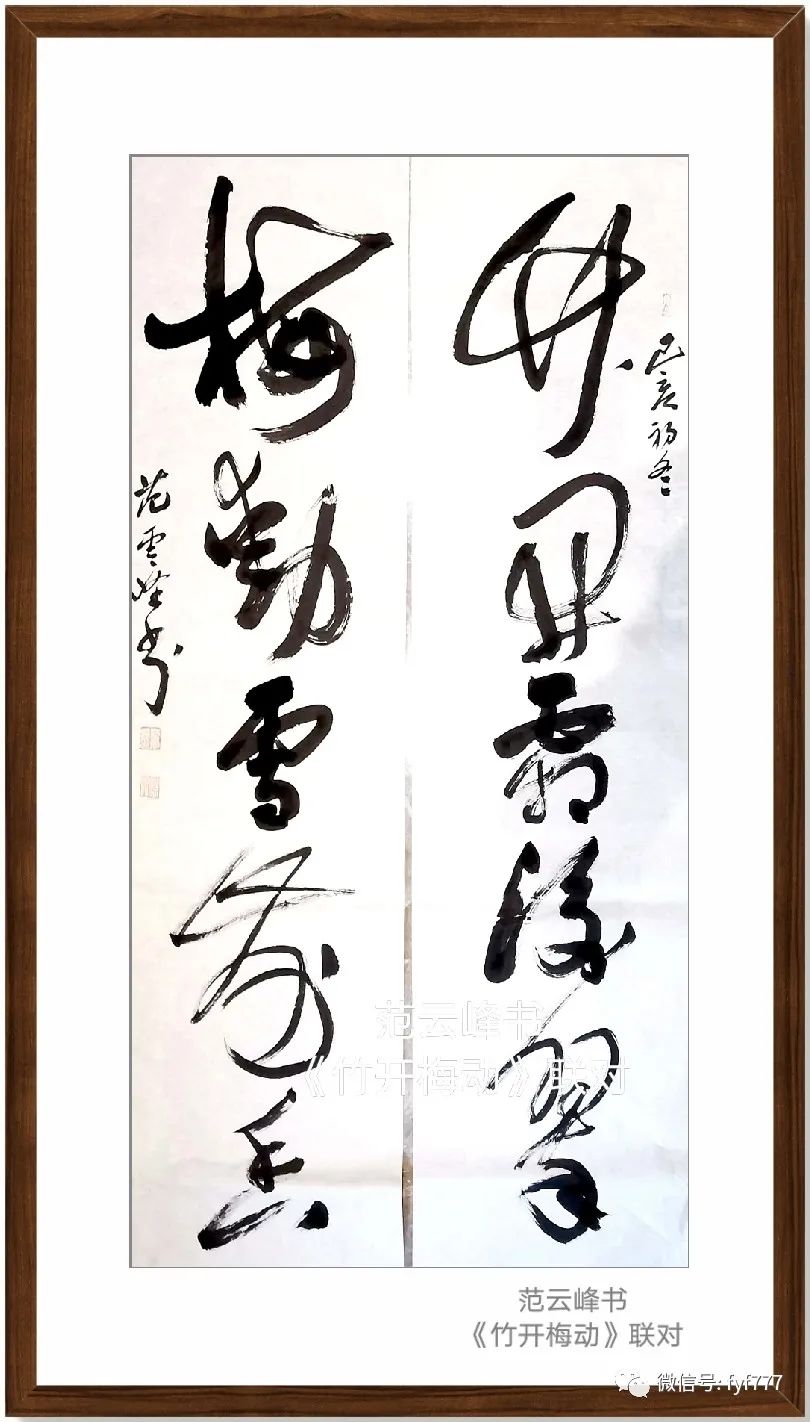 己亥初冬
竹開霜後翠
梅動雪前香
范雲峰书
范云峰书
《竹开梅动》联对
范云峰书
《竹开梅动》联对
微信号: fyf777